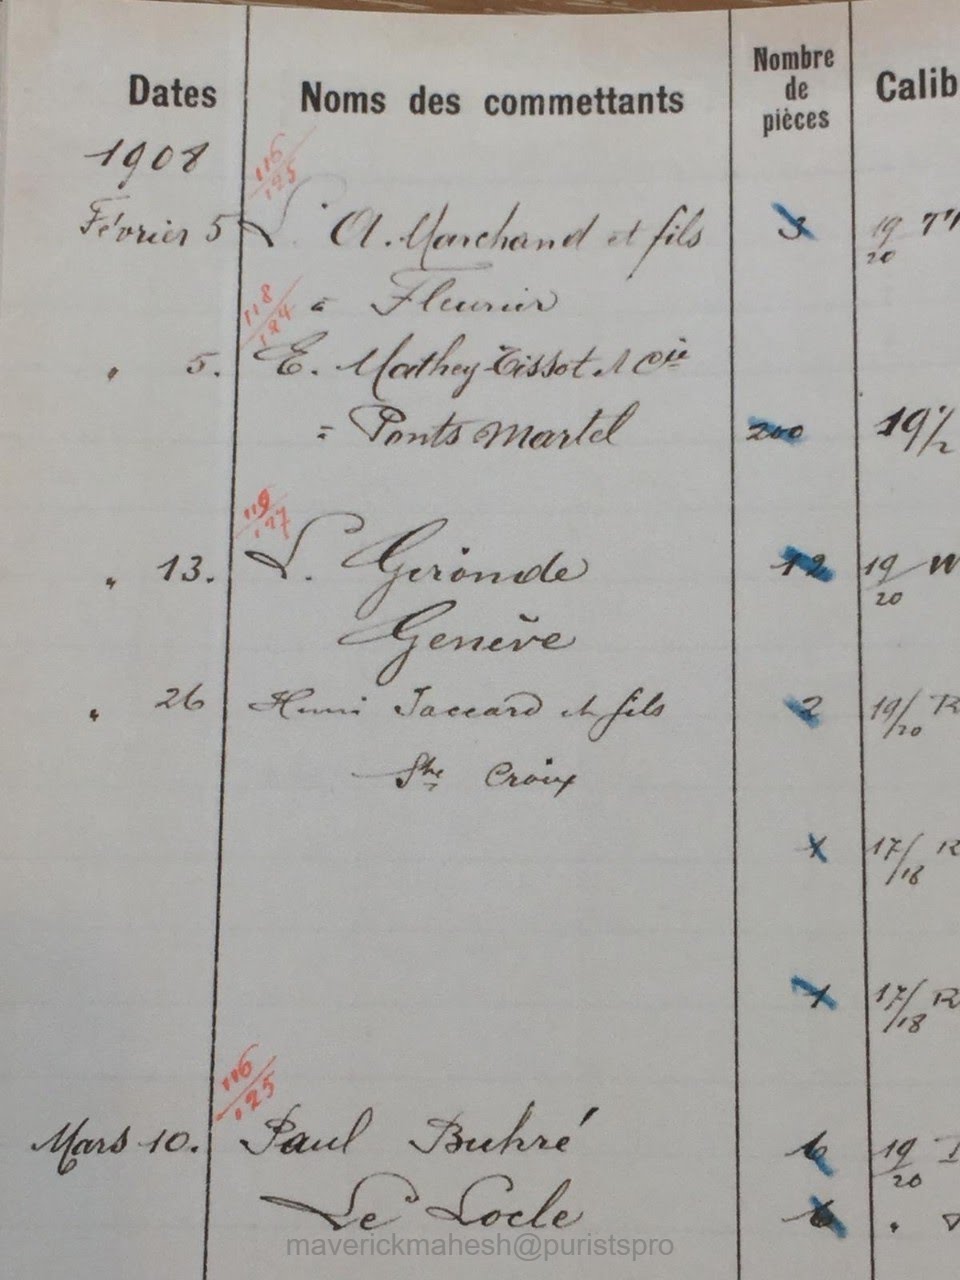 Dates Noms des commettants Nombre de pièces Calib
1908
116/125
Février 5 L. A. Marchand et fils 3 19/20
" Fleurier
118/124
" 5. E. Mathey-Tissot & Cie
= Ponts Martel 200 19 1/2
119/127
" 13. L. Gironde 12 19/20
Genève
" 26 Henri Jaccard & fils 2 19/20 R
Ste Croix
1 17/18 R
1 17/18 R
116/125
Mars 10. Paul Buhré 6 19/20
Le Locle 6 "
maverickmahesh@puristspro